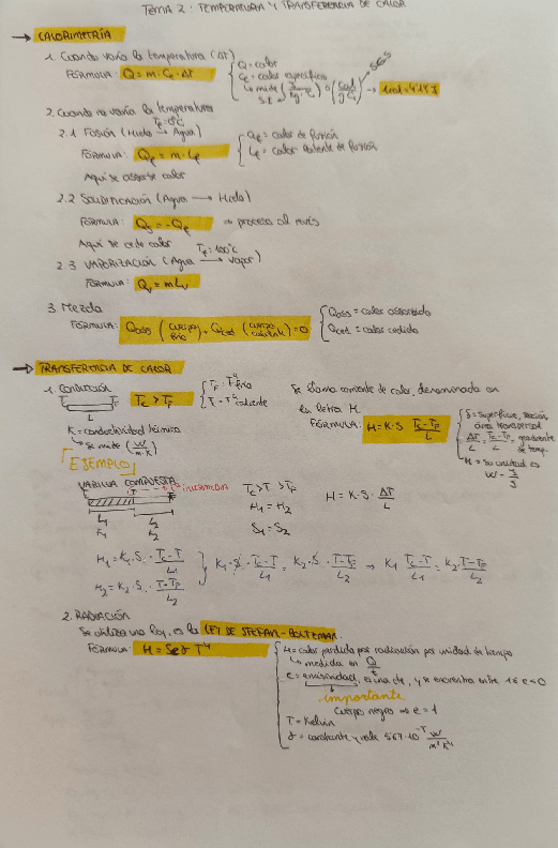 TEMA 2: TEMPERATURA Y TRANSFERENCIA DE CALOR
→ CALORIMETRÍA
1. Cuando varía la temperatura (ΔT)
FÓRMULA: Q = m · Ce · ΔT
Q = calor
Ce = calor específico
↳ mide
S.I. (J / Kg · °C) o (cal / g °C) → 1 cal = 4'18 J
2. Cuando no varía la temperatura
TF = 0°C
2.1 FUSIÓN (Hielo → Agua)
FÓRMULA: QF = m · LF
QF = calor de fusión
LF = calor latente de fusión
Aquí se absorbe calor
2.2 SOLIDIFICACIÓN (Agua → Hielo)
FÓRMULA: QS = -QF ⇒ proceso al revés
Aquí se cede calor
TF = 100°C
2.3 VAPORIZACIÓN (Agua → vapor)
FÓRMULA: QV = m LV
3. Mezcla
FÓRMULA: Qabs (cuerpo frío) + Qced (cuerpo caliente) = 0
Qabs = calor absorbido
Qced = calor cedido
→ TRANSFERENCIA DE CALOR
1. CONDUCCIÓN
TC > TF
TF = Tª fría
T = Tª caliente
L
K = conductividad térmica
↳ se mide (W / m·K)
Se llama corriente de calor, denominada en
la letra H.
FÓRMULA: H = K · S TC - TF / L
S = superficie, sección
área transversal
ΔT / L = TC - TF / L, gradiente
de temp.
H = su unidad es
W = J / s
EJEMPLO
VARILLA COMPUESTA
L1 L2
K1 K2
TC > T > TF
H1 = H2
S1 = S2
H = K · S · ΔT / L
H1 = K1 · S · TC - T / L1
H2 = K2 · S · T - TF / L2
K1 · S · TC - T / L1 = K2 · S · T - TF / L2 ⇒ K1 TC - T / L1 = K2 · T - TF / L2
2. RADIACIÓN
Se utiliza una ley, es la LEY DE STEFAN-BOLTZMAN.
FÓRMULA: H = Seσ T⁴
H = calor perdido por radiación por unidad de tiempo
↳ medida en Q / t
e = emisividad, es una cte, y se encuentra entre 1 ≤ e < 0
importante
Cuerpo negro ⇒ e = 1
T = Kelvin
σ = constante y vale 5'67 · 10⁻⁸ W / m² K⁴